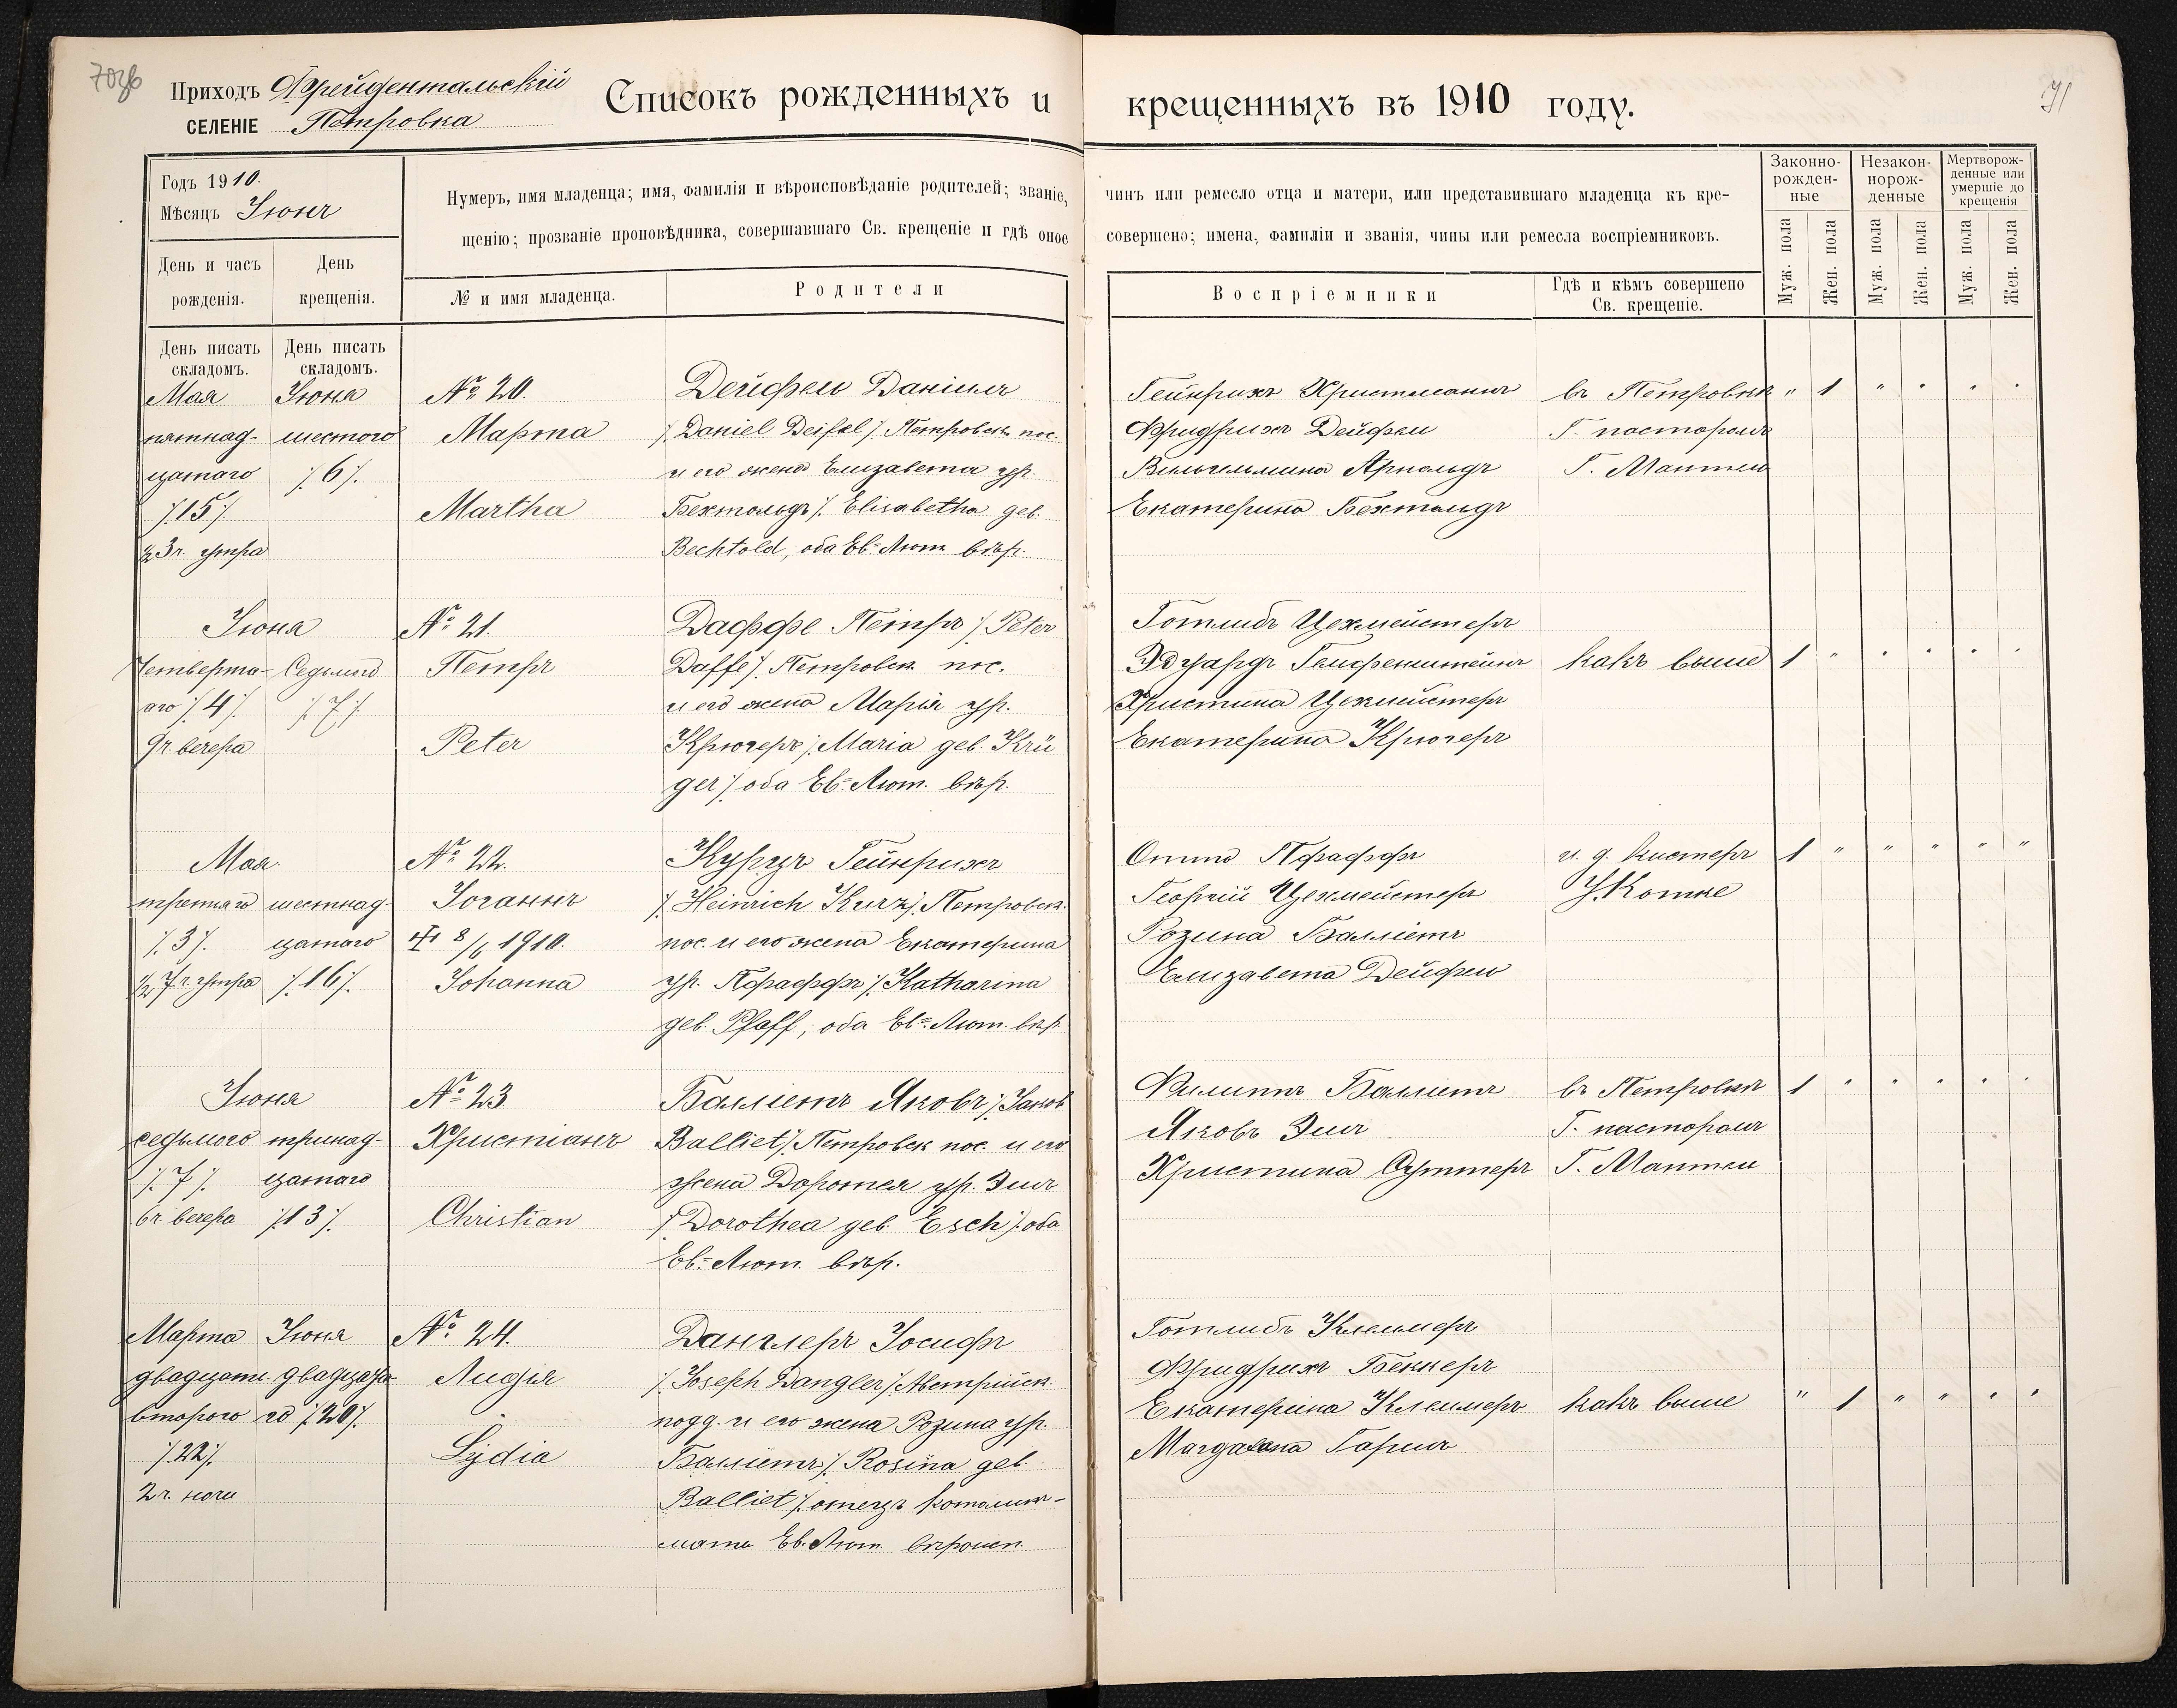 70об
71
Приходъ Фрейдентальскій
СЕЛЕНІЕ Петровка
Списокъ рожденныхъ и крещенныхъ въ 1910 году.
Годъ 1910.
Мѣсяцъ Іюнь
День и часъ рожденія.
День крещенія.
Нумеръ, имя младенца; имя, фамилія и вѣроисповѣданіе родителей; званіе, чинъ или ремесло отца и матери, или представившаго младенца къ кре-
щенію; прозваніе проповѣдника, совершавшаго Св. крещеніе и гдѣ оное совершено; имена, фамиліи и званія, чины или ремесла воспріемниковъ.
№ и имя младенца.
Родители
Воспріемники
Гдѣ и кѣмъ совершено
Св. крещеніе.
Законно-
рожден-
ные
Незакон-
норож-
денные
Мертворож-
денные или
умершіе до
крещенія
Муж. пола
Жен. пола
Муж. пола
Жен. пола
Муж. пола
Жен. пола
День писать
складомъ.
День писать
складомъ.
Мая
пятнад-
цатаго
/.15/.
½3ч. утра
Іюня
шестого
/.6/.
№ 20.
Марта
Martha
Дейфель Даніилъ
/. Daniel Deifel /. Петровск. пос.
и его жена Елизавета ур.
Бехтольдъ /. Elisabetha geb.
Bechtold, оба Ев.=Лют. вѣр.
Гейнрихъ Христманнъ
Фридрихъ Дейфель
Вильгельмина Арнольдъ
Екатерина Бехтольдъ
въ Петровкѣ
Г. пасторомъ
Г. Мантей
" 1 " " " "
Іюня
Четверта-
аго /.4/.
9ч. вечера
Седьмого
/.7/.
№ 21.
Петръ
Peter
Даффе Петръ /. Peter
Daffe /. Петровск. пос.
и его жена Марія ур.
Крюгеръ /. Maria geb. Krü
ger /. оба Ев.=Лют. вѣр.
Готлибъ Цехмейстеръ
Эдуардъ Гельфенштейнъ
Христина Цехмейстеръ
Екатерина Крюгеръ
какъ выше
1 " " " " "
Мая
третьяго
/.3/.
½7ч. утра
шестнад-
цатаго
/.16/.
№ 22.
Іоганнъ
8/6 1910.
Johanna
Курцъ Гейнрихъ
/. Heinrich Kurz /. Петровск.
пос. и его жена Екатерина
ур. Пфаффъ /. Katharina
geb. Pfaff, оба Ев.=Лют. вѣр.
Отто Пфаффъ
Георгій Цехмейстеръ
Розина Балліетъ
Елизавета Дейфель
и. д. кистеръ
У. Котке
1 " " " " "
Іюня
седьмого
/.7/.
6ч. вечера
тринад-
цатаго
/.13/.
№ 23
Христіанъ
Christian
Балліетъ Яковъ /. Jakob
Balliet /. Петровск. пос. и его
жена Доротея ур. Эшъ
/. Dorothea geb. Esch /. оба
Ев.=Лют. вѣр.
Филиппъ Балліетъ
Яковъ Эшъ
Христина Суттеръ
въ Петровкѣ
Г. пасторомъ
Г. Мантей
1 " " " " "
Марта
двадцать
второго
/.22/.
2ч. ночи
Іюня
двадцата-
го /.20/.
№ 24.
Лидія
Lydia
Данглеръ Іосифъ
/. Joseph Dangler /. Австрійск.
подд. и его жена Розина ур.
Балліетъ /. Rosina geb.
Balliet /. отецъ католик-
мать Ев. Лют. вѣроисп.
Готлибъ Клеммеръ
Фридрихъ Беккеръ
Екатерина Клеммеръ
Магдалена Гаршъ
какъ выше
" 1 " " " "